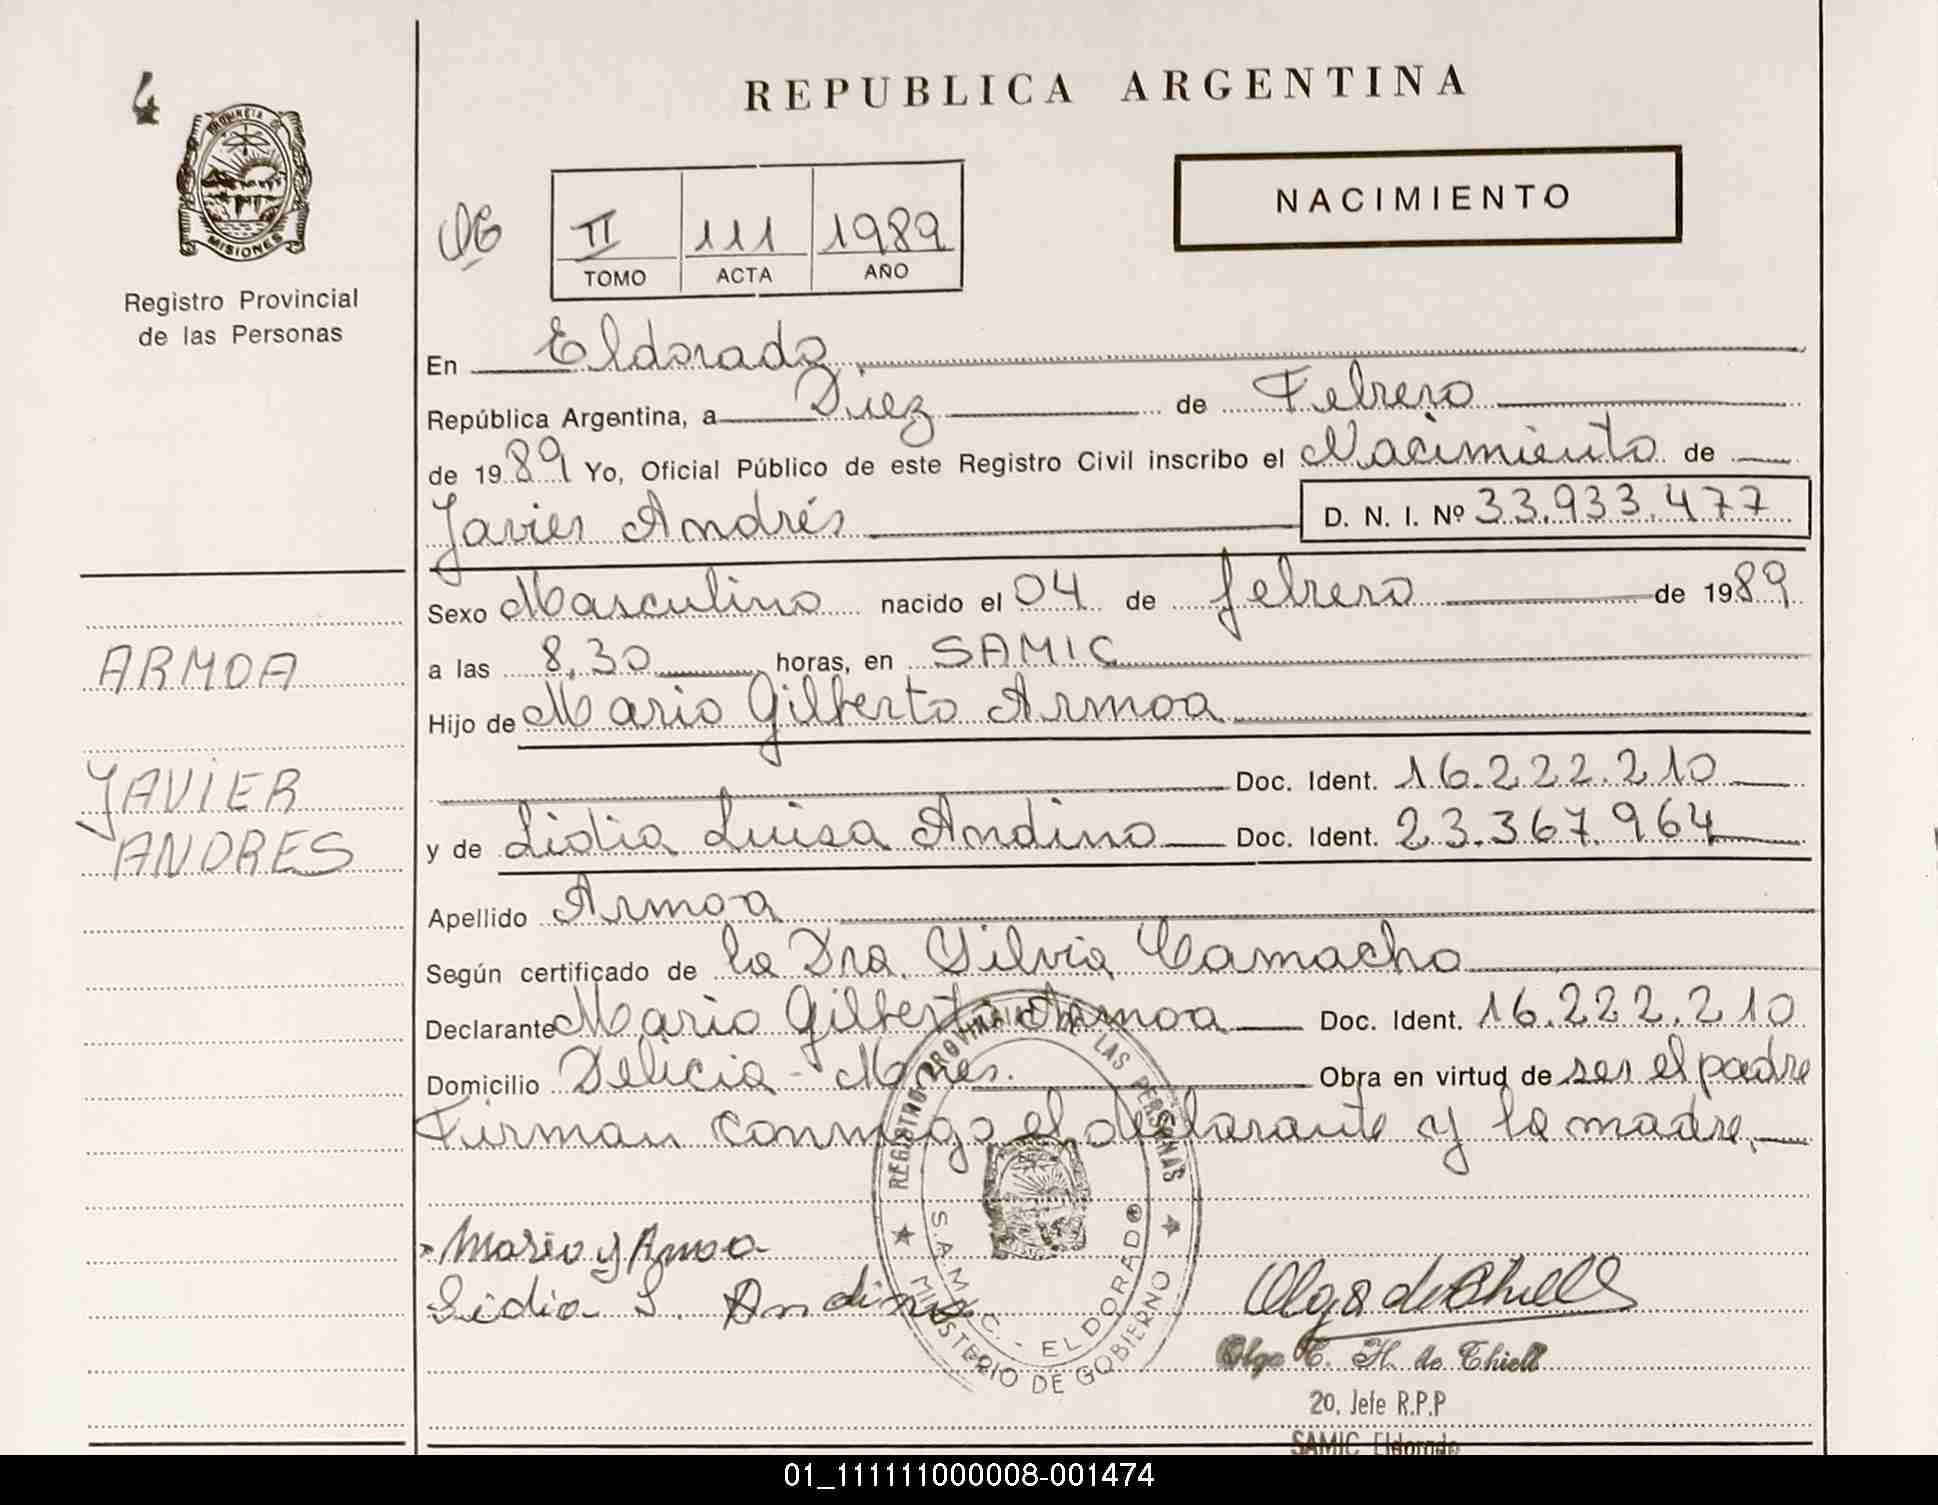 REPUBLICA ARGENTINA
4
PROVINCIA D
MISIONES
Registro Provincial
de las Personas
II 111 1989
TOMO ACTA AÑO
NACIMIENTO
En Eldorado,
República Argentina, a Diez de Febrero
de 1989 Yo, Oficial Público de este Registro Civil inscribo el Nacimiento de
Javier Andrés D. N. I. Nº 33.933.477
Sexo Masculino nacido el 04 de febrero de 1989
a las 8,30 horas, en SAMIC
Hijo de Mario Gilberto Armoa
Doc. Ident. 16.222.210
y de Lidia Luisa Andino Doc. Ident. 23.367.964
Apellido Armoa
Según certificado de la Dra. Silvia Camacho
Declarante Mario Gilberto Armoa Doc. Ident. 16.222.210
Domicilio Delicia - Mnes. Obra en virtud de ser el padre
Firman conmigo el declarante y la madre.
ARMOA
JAVIER
ANDRES
REGISTRO PROVINCIAL DE LAS PERSONAS
S.A.M.I.C. - ELDORADO
MINISTERIO DE GOBIERNO
Mario g Armoa
Lidia L. Andino
Olga de Thiell
Olga T. H. de Thiell
20. Jefe R.P.P
SAMIC Eldorado
01_111111000008-001474